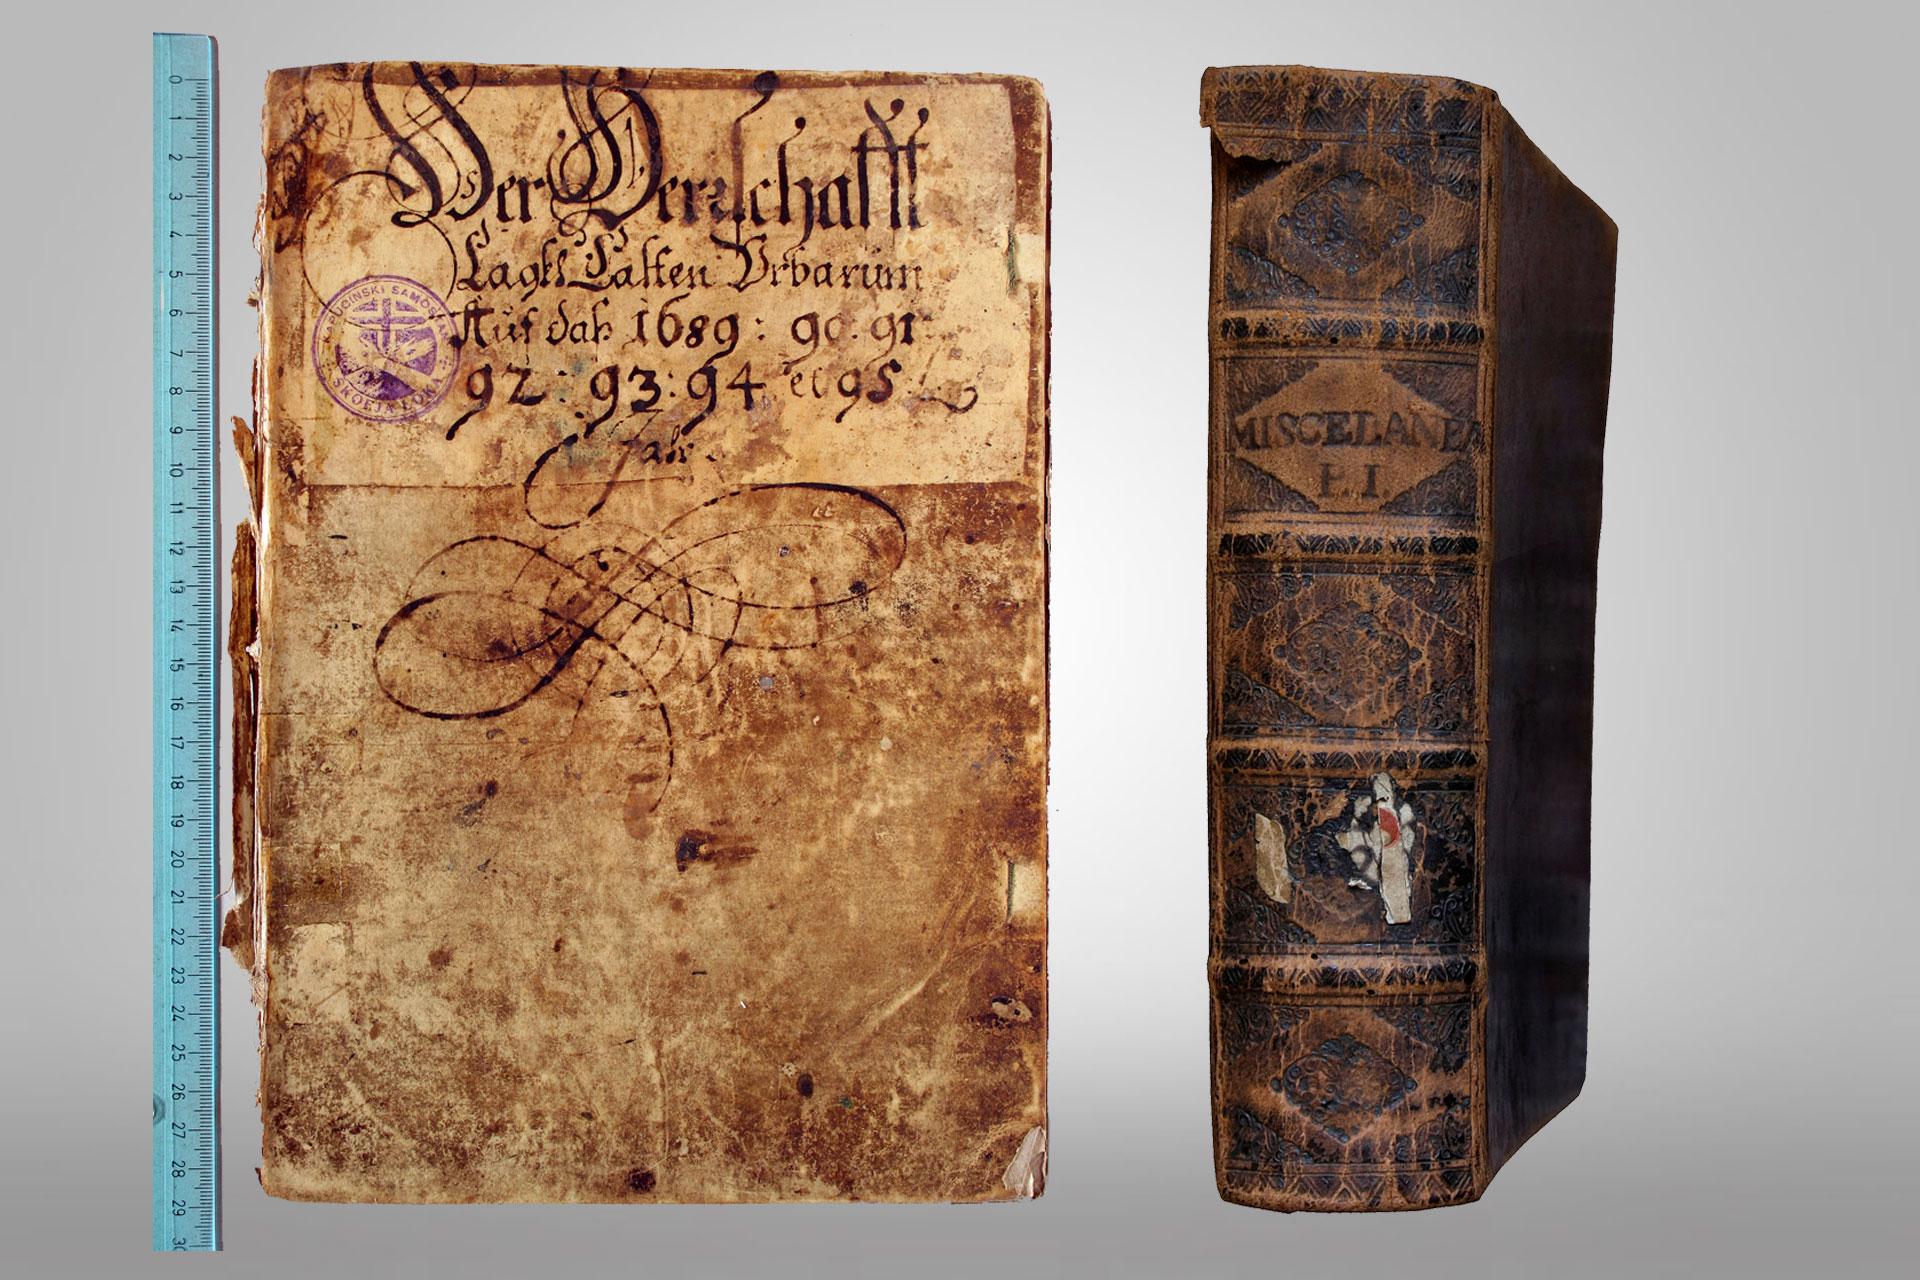 Der Herrschafft
Lagkh Casten Vrbarium
Auf daß 1689: 90: 91
92: 93: 94 et 95
Jahr.
KAPUCINSKI SAMOSTAN
ŠKOFJA LOKA
MISCELANEA
P I
0
1
2
3
4
5
6
7
8
9
10
11
12
13
14
15
16
17
18
19
20
21
22
23
24
25
26
27
28
29
30